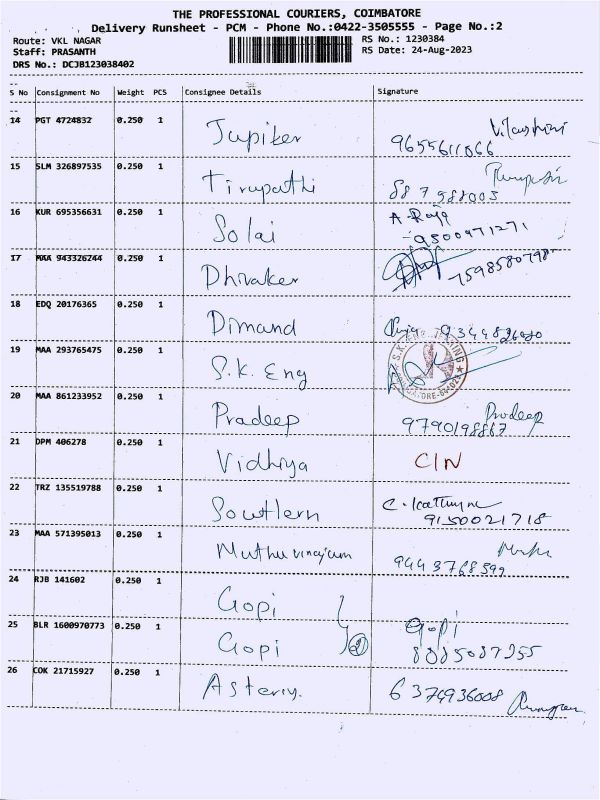 THE PROFESSIONAL COURIERS, COIMBATORE
Delivery Runsheet - PCM - Phone No.:0422-3505555 - Page No.:2
Route: VKL NAGAR RS No.: 1230384
Staff: PRASANTH RS Date: 24-Aug-2023
DRS No.: DCJB123038402
S No Consignment No Weight PCS Consignee Details Signature
14 PGT 4724832 0.250 1 Jupiter 9655611066
15 SLM 326897535 0.250 1 Tirupathi 887988005
16 KUR 695356631 0.250 1 Solai A. Raja 9500971271
17 MAA 943326244 0.250 1 Dhivaker 7598580798
18 EDQ 20176365 0.250 1 Dimand
19 MAA 293765475 0.250 1 S.K. Eng
20 MAA 861233952 0.250 1 Pradeep Pradeep 9790198867
21 DPM 406278 0.250 1 Vidhiya CIN
22 TRZ 135519788 0.250 1 Southern 9150021718
23 MAA 571395013 0.250 1 9443768599
24 RJB 141602 0.250 1 Gopi
25 BLR 1600970773 0.250 1 Gopi 2 Gopi 8885087355
26 COK 21715927 0.250 1 6374936008